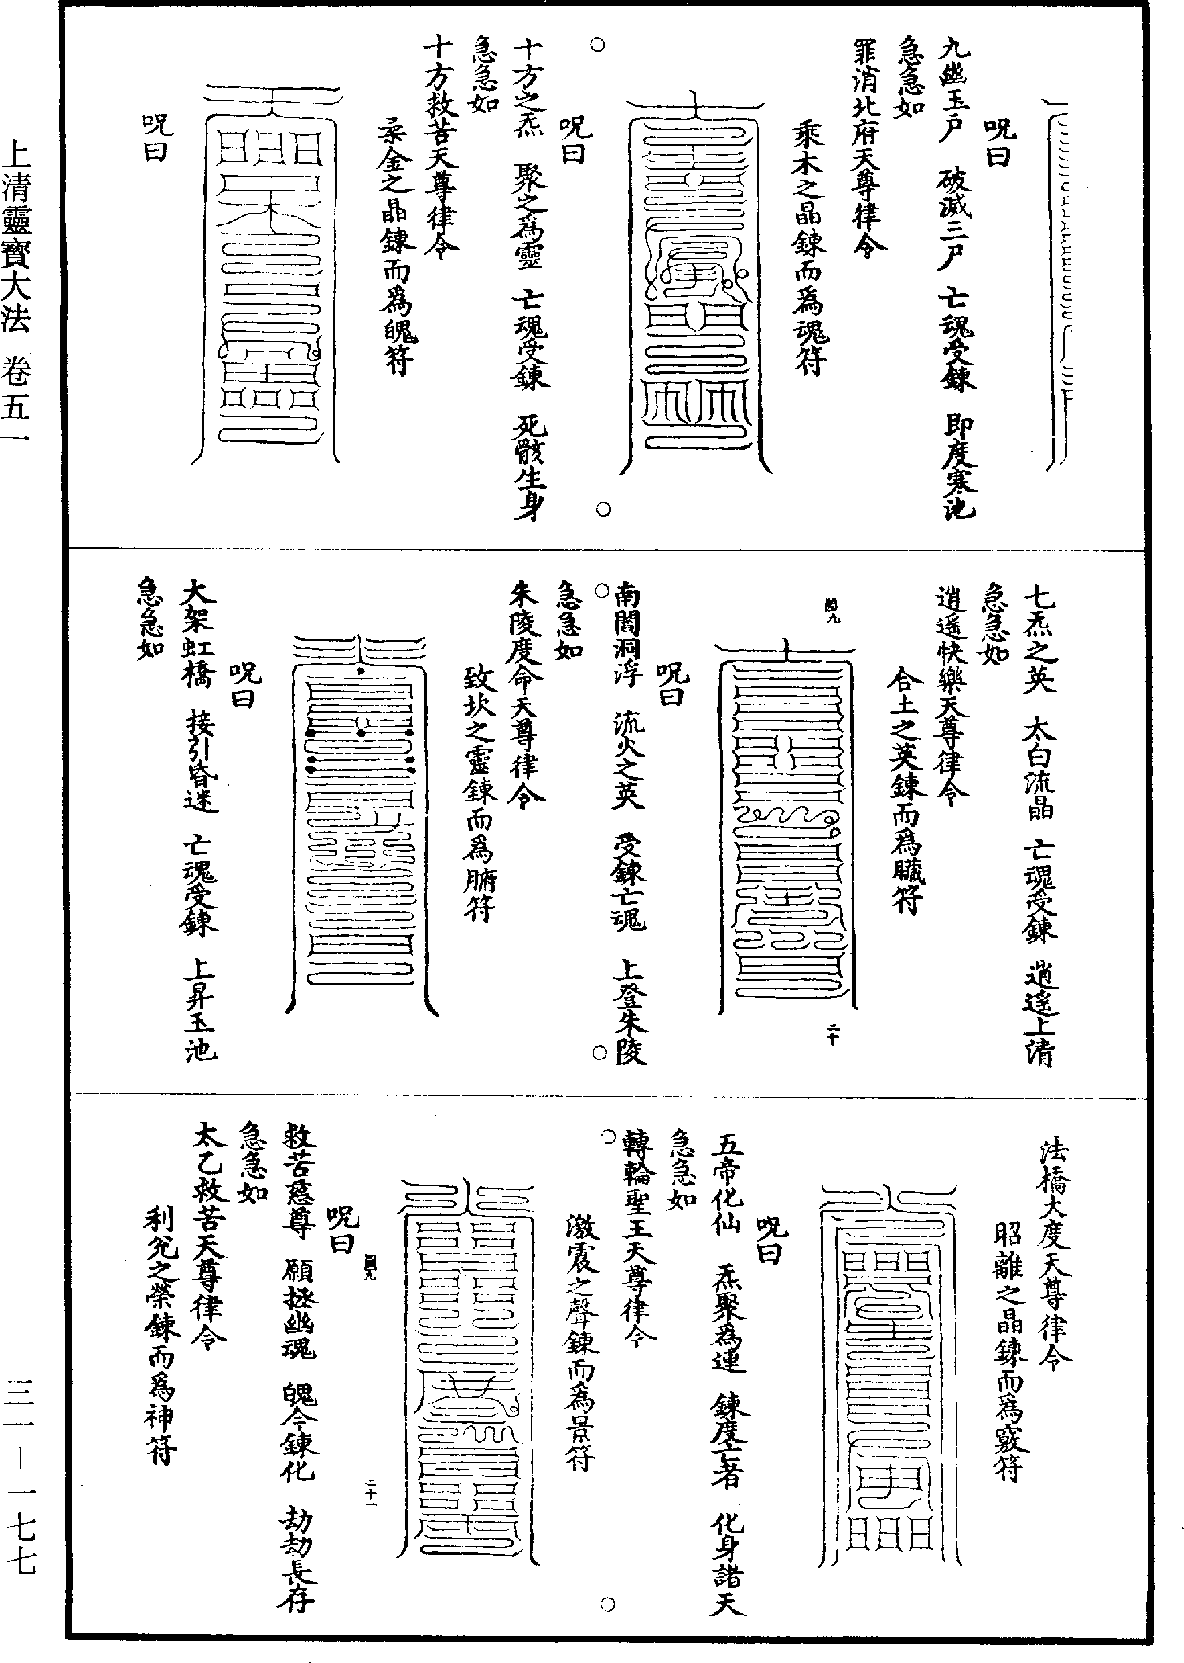 上清靈寶大法 卷五一
三一—一七七
呪曰
九幽玉戶 破滅三尸 亡魂受鍊 即度寒池
急急如
罪消北府天尊律令
乘木之晶鍊而爲魂符
呪曰
十方之炁 聚之爲靈 亡魂受鍊 死骸生身
急急如
十方救苦天尊律令
桑金之晶鍊而爲魄符
呪曰
七炁之英 太白流晶 亡魂受鍊 逍遙上清
急急如
逍遙快樂天尊律令
合土之英鍊而爲臟符
二十
呪曰
南閻洞浮 流火之英 受鍊亡魂 上登朱陵
急急如
朱陵度命天尊律令
致坎之靈鍊而爲腑符
呪曰
大架虹橋 接引昏迷 亡魂受鍊 上昇玉池
急急如
法橋大度天尊律令
昭離之晶鍊而爲竅符
呪曰
五帝化仙 炁聚爲運 鍊度亡者 化身諸天
急急如
轉輪聖王天尊律令
激震之聲鍊而爲景符
二十一
呪曰
救苦慈尊 願拯幽魂 魄令鍊化 劫劫長存
急急如
太乙救苦天尊律令
利兌之榮鍊而爲神符